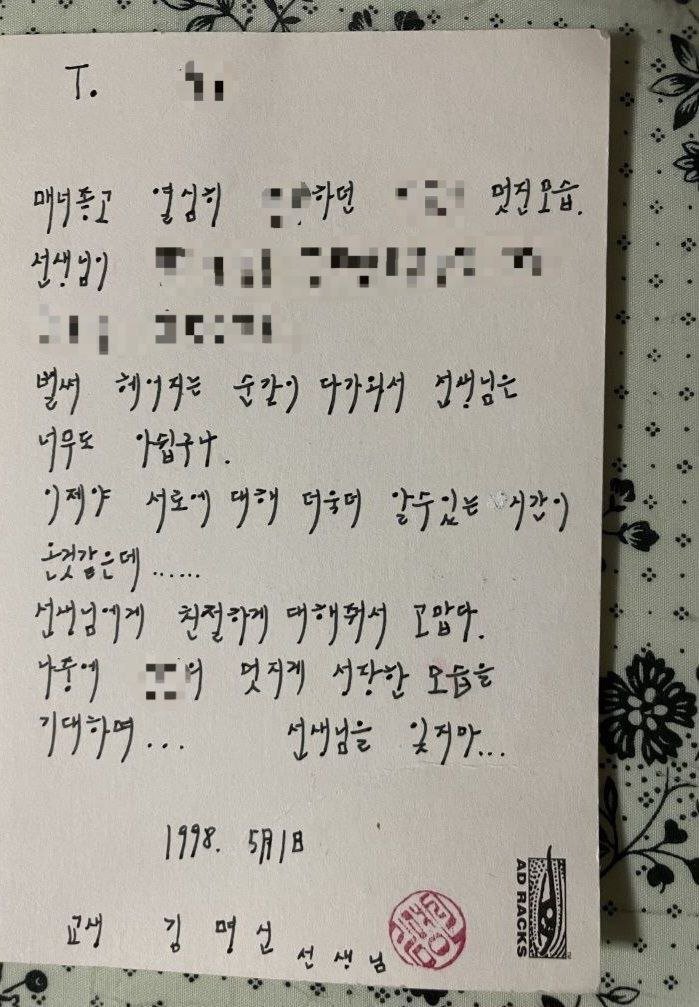 T.
매너좋고 열심히 하던 멋진모습.
선생님이
벌써 헤어지는 순간이 다가와서 선생님은
너무도 아쉽구나.
이제야 서로에 대해 더욱더 알수있는 시간이
온것같은데......
선생님에게 친절하게 대해줘서 고맙다.
나중에 의 멋지게 성장한 모습을
기대하며... 선생님을 잊지마...
1998. 5月1日
교생 김명신 선생님
AD RACKS